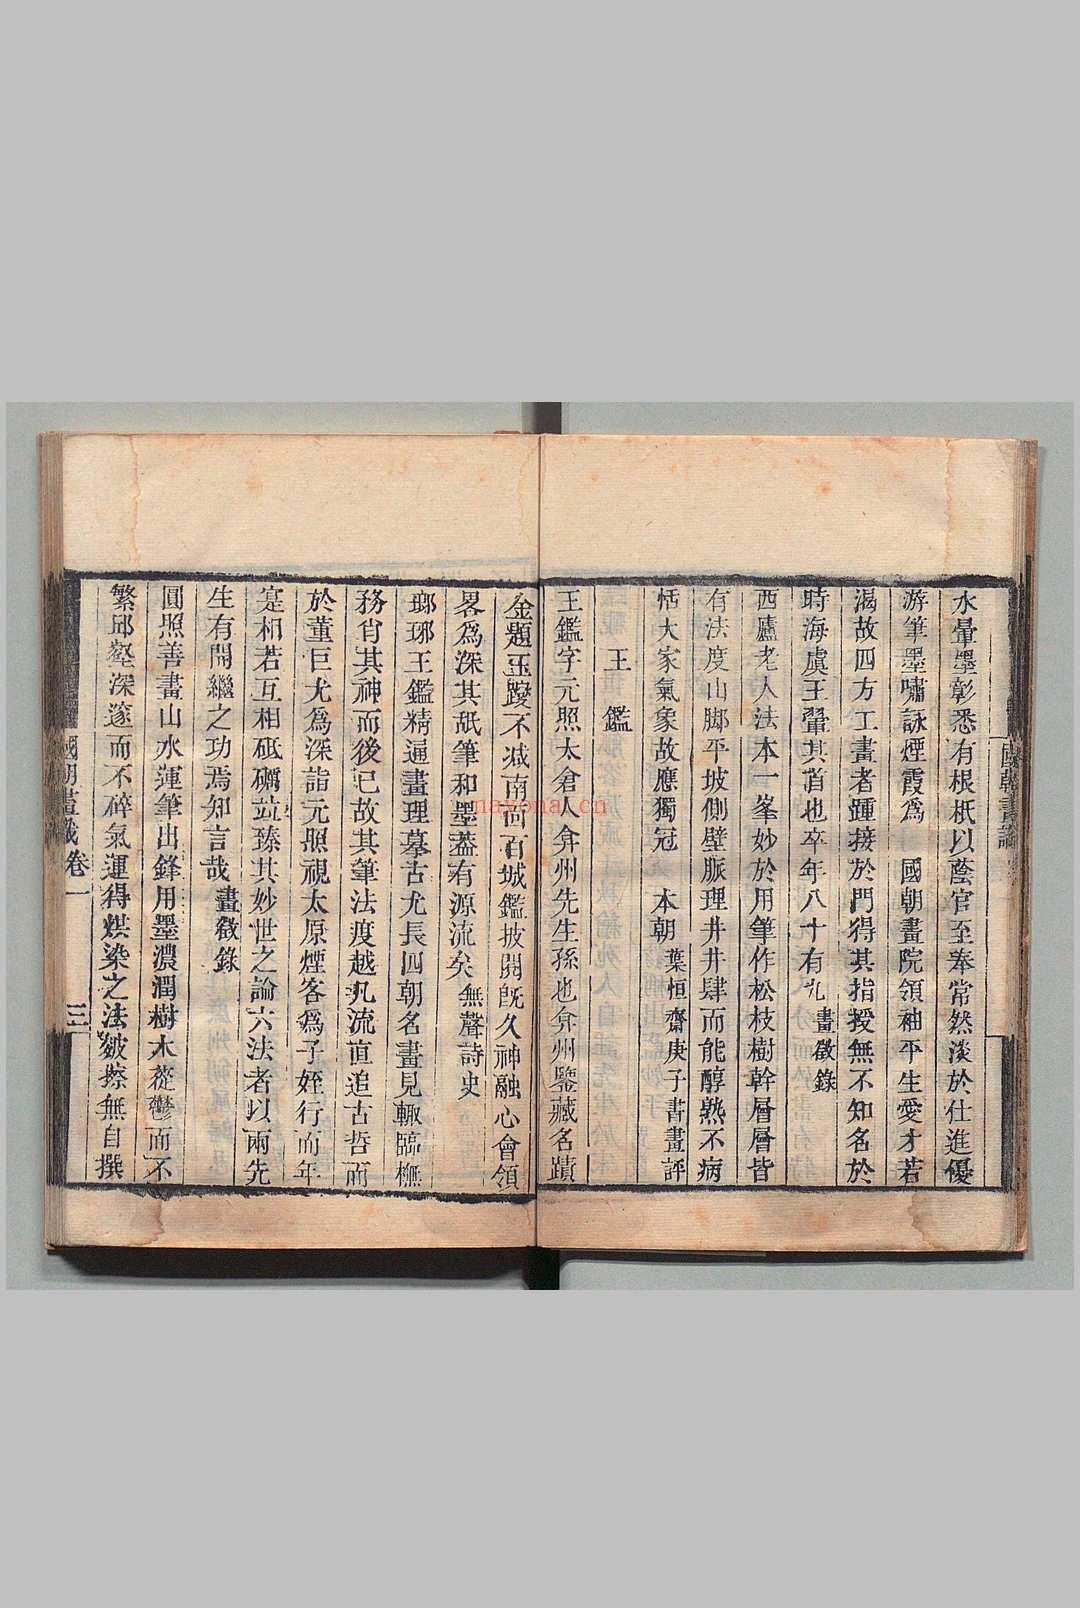 水暈墨彰悉有根柢以蔭官至奉常然淡於仕進優
游筆墨嘯詠煙霞爲 國朝畫院領袖平生愛才若
渴故四方工畫者踵接於門得其指授無不知名於
時海虞王翬其首也卒年八十有九 畫徵錄
西廬老人法本一峯妙於用筆作松枝樹幹層層皆
有法度山脚平坡側壁脈理井井肆而能醇熟不病
恬大家氣象故應獨冠 本朝 葉恒齋庚子書畫評
王鑑
王鑑字元照太倉人弇州先生孫也弇州鑒藏名蹟
金題玉躞不減南面百城鑑披閱既久神融心會領
畧爲深其舐筆和墨葢有源流矣 無聲詩史
瑯琊王鑑精通畫理摹古尤長四朝名畫見輒臨橅
務肖其神而後已故其筆法度越凡流直追古哲而
於董巨尤爲深詣元照視太原煙客爲子姪行而年
寔相若互相砥礪竝臻其妙世之論六法者以兩先
生有開繼之功焉知言哉 畫徵錄
圓照善畫山水運筆出鋒用墨濃潤樹木蒼鬱而不
繁邱壑深邃而不碎氣運得烘染之法皴擦無自撰
國朝畫識卷一
三
nayona.cn